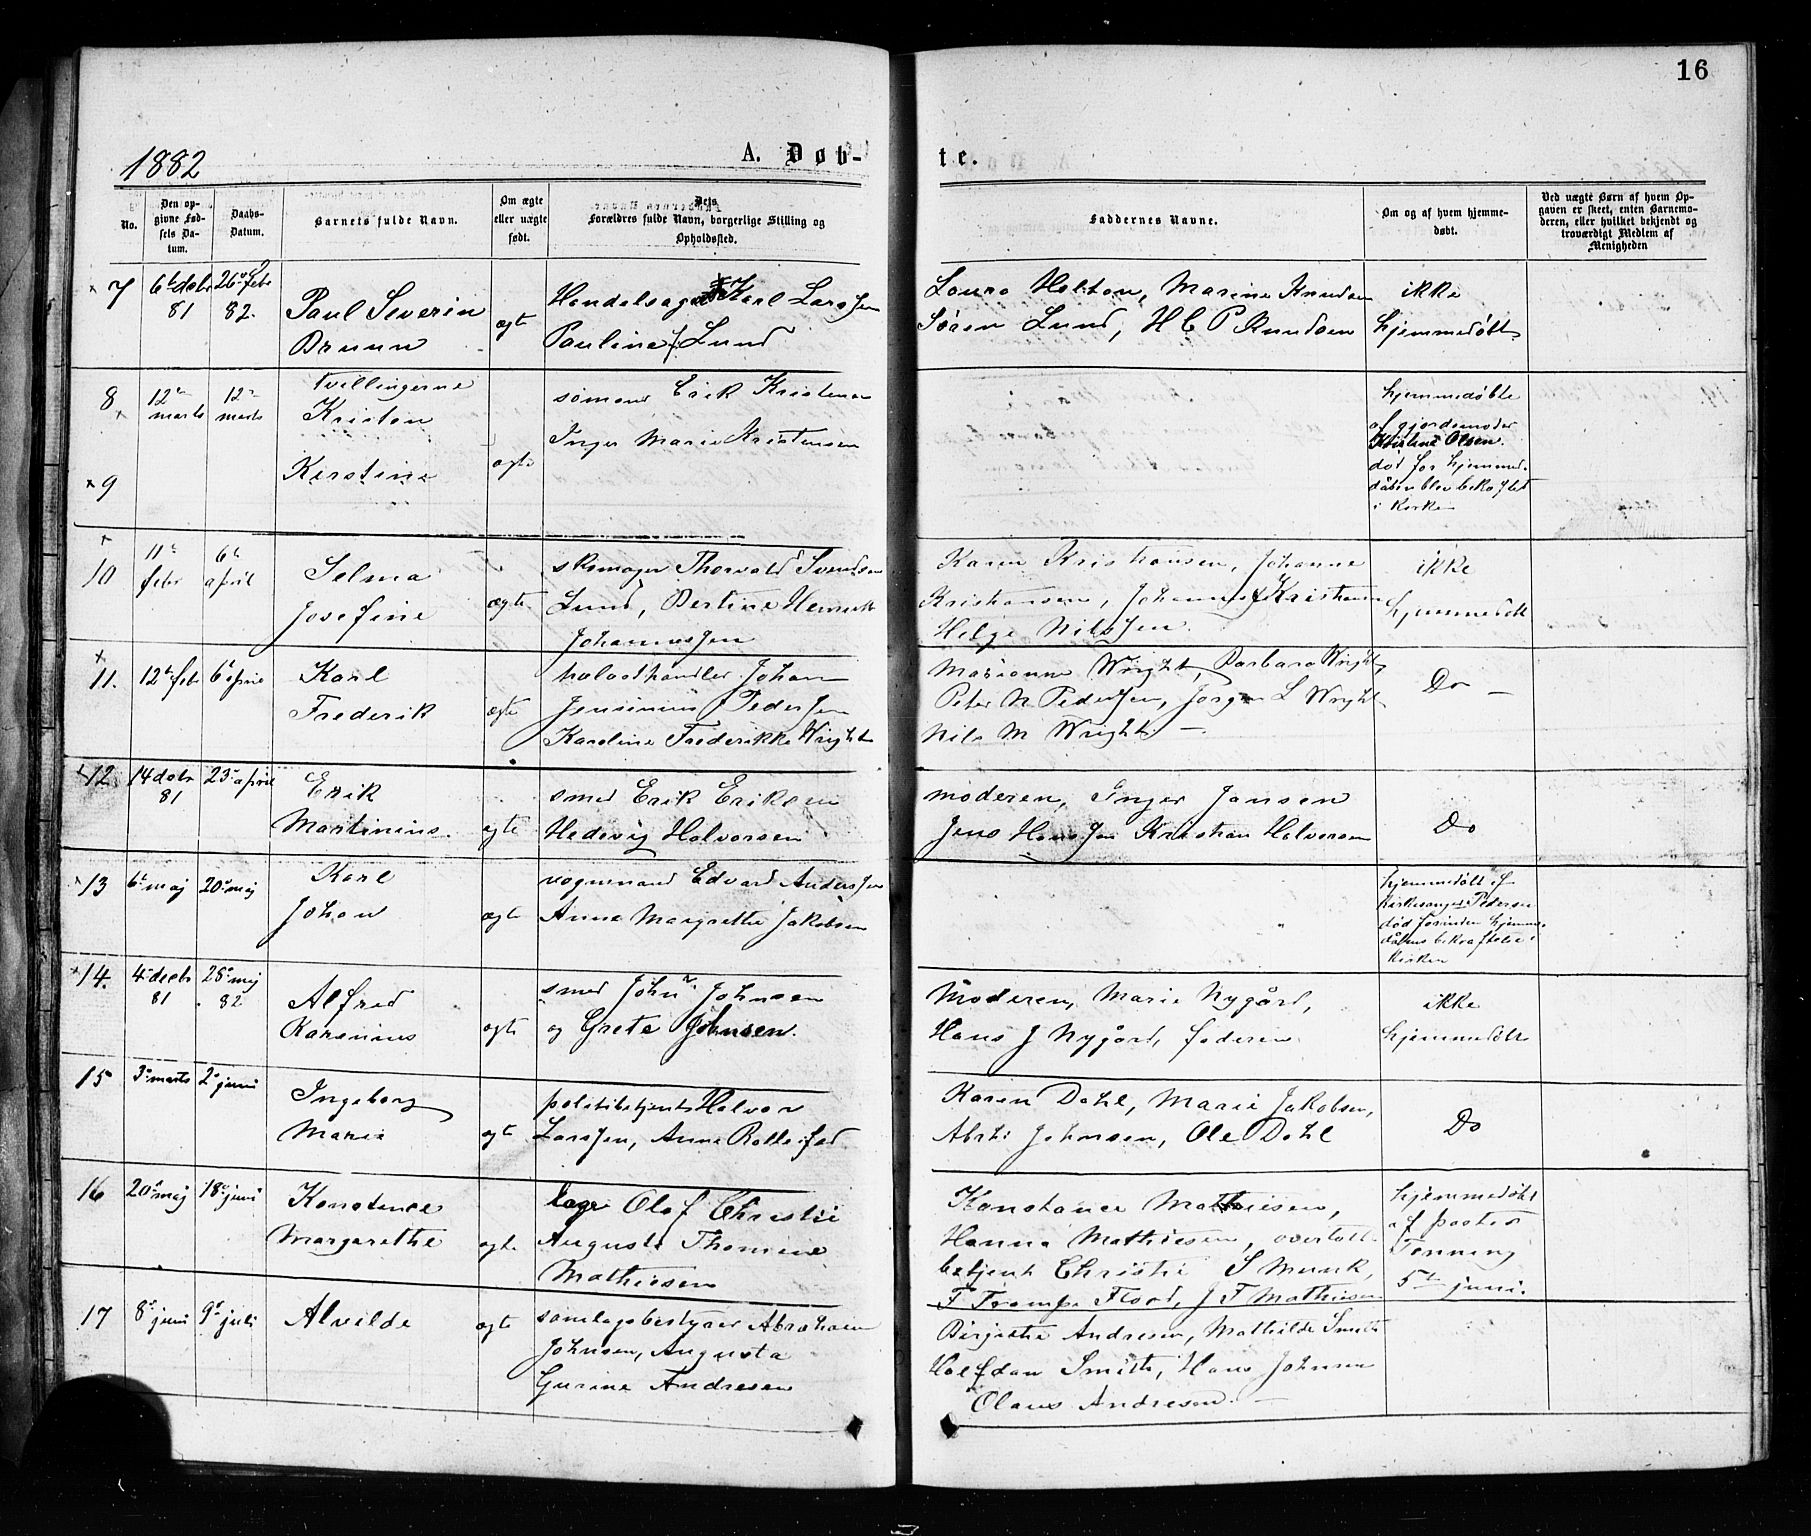 16
1882
A. Døb-
te.
No.
Den op-
givne Fød-
sels Da-
tum.
Daabs-
Datum.
Barnets fulde Navn.
Om ægte
eller uægte
født.
Dets
Forældres fulde Navn, borgerlige Stilling og
Opholdssted.
Faddernes Navne.
Om og af hvem hjemme-
døbt.
Ved uægte Børn af hvem Op-
gaven er skeet, enten Barnemo-
deren, eller hvilket bekjendt og
troværdigt Medlem af
Menigheden
7
6t
81
26 febr
82.
Paul Severin
Bruun
ægte
Karl Larssen
Pauline Lund
Laura Holton, Marine Knudsen
Søren Lund, H C P Knudsen
ikke
hjemmedøbt
8
9
12te
marts
12te
marts
tvillingerne
Kristen
Kerstine
ægte
sømand Erik Kristensen
Inger Marie Kristensen
hjemmedøbte
af gjordemoder
Olsen.
død før hjemme
dåben blev bekræftet
i Kirken
10
11te
febr
6te
april
Selma
Josefine
ægte
skomager Thorvald Svendsen
Lund, Bertine
Johannessen
Karen Kristiansen, Johanne
Kristiansen, Johannes Kristiansen
Helge Nilssen.
ikke
hjemmedøbt
11.
12te febr
6te april
Karl
Frederik
ægte
Johan
Jensinius Pedersen
Karoline Frederikke Wright
Marianne Wright, Barbara Wright,
Peter N Pedersen, Jørgen L Wright
Nils M Wright.
Do
12.
14
81
23 april
Erik
Martinius.
ægte
smed Erik Eriksen
Hedevig Halvorsen
moderen, Inger Jansen
Jens Hanssen Kristian Halvorsen
Do
13
6te maj
20 maj
Karl
Johan
ægte
vognmand Edvard Anderssen
Anne Margrethe Jakobsen
hjemmedøbt af
Kirkesanger Pedersen
død forinden hjemme-
dåbens bekræftelse i
Kirken
14.
4 decbr
81
28 maj
82
Alfred
Karenius
ægte
smed John Johnsen
og Grete Johnsen.
Moderen, Marie Nygård,
Hans J Nygård, faderen
ikke
hjemmedøbt
15
3 marts
2 juni
Ingeborg
Marie
ægte
politibetjent Halvor
Larssen, Anne
Karen Dahl, Marie Jakobsen,
Johnsen, Ole Dahl
Do
16
20 maj
18 juni
Konstance
Margarethe
ægte
læge Olaf Christie
Augusta Thomine
Mathiesen
Konstance Mathiesen,
Hanna Mathiesen, overtold-
betjent Christie S Munk,
F Trampe Flood, J F Mathiesen
hjemmedøbt
af pastor
Tønning
5te juni.
17
8 juni
9 juli
Alvilde
ægte
samlagsbestyrer Abraham
Johnsen, Augusta
Gurine Andresen
Birgitte Andresen, Mathilde Smith
Halfdan Smith, Hans Johnsen
Olaus Andresen.